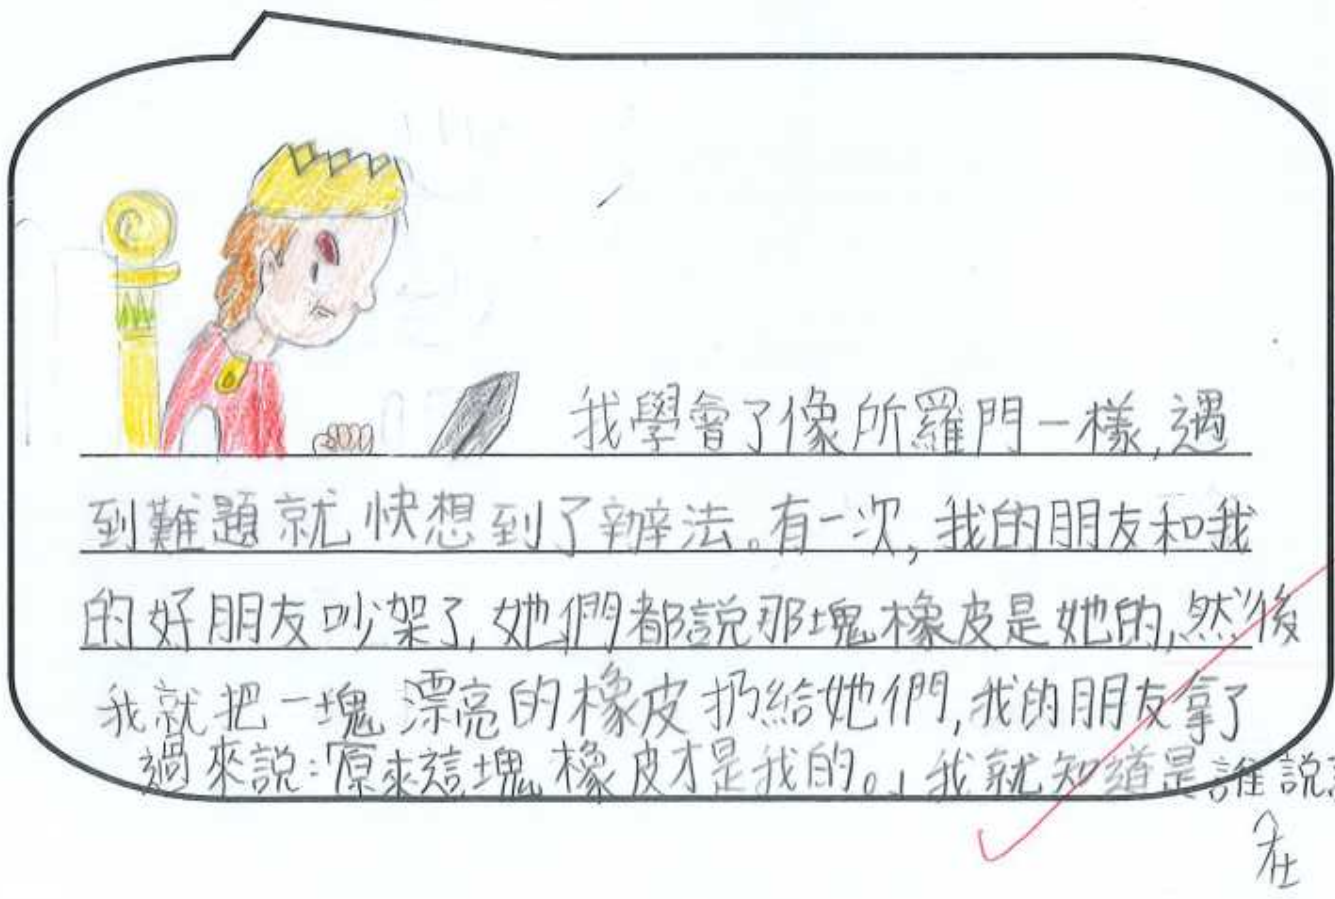 我學會了像所羅門一樣,遇
到難題就快想到了辦法。有一次,我的朋友和我
的好朋友吵架了,她們都說那塊橡皮是她的,然後
我就把一塊漂亮的橡皮扔給她們,我的朋友拿了
過來說:「原來這塊橡皮才是我的。」我就知道是誰說
在